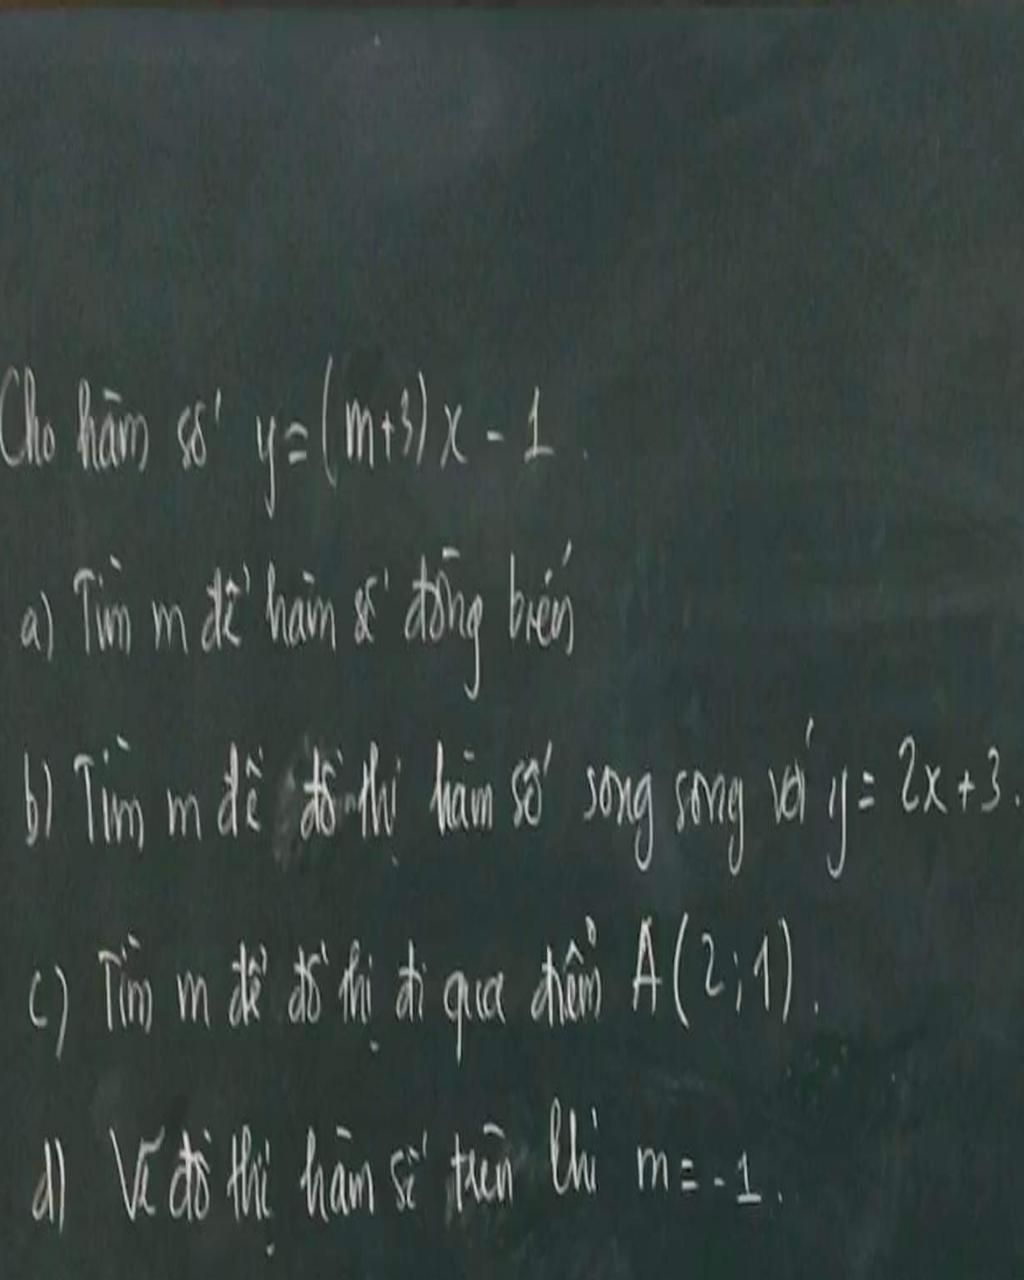 Cho hàm số y=(m+3)x - 1.
a) Tìm m để hàm số đồng biến
b) Tìm m để đồ thị hàm số song song với y= 2x+3.
c) Tìm m để đồ thị đi qua điểm A(2;1).
d) Vẽ đồ thị hàm số trên khi m=-1.